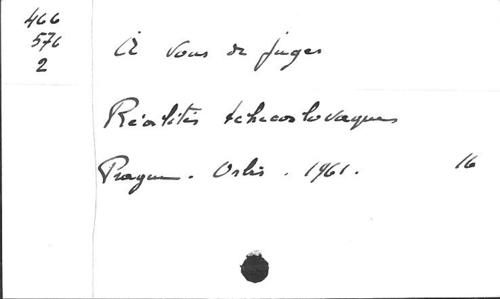 466
576
2
À vous de juger
Réalités tchécoslovaques
Prague. Orbis. 1961. 16